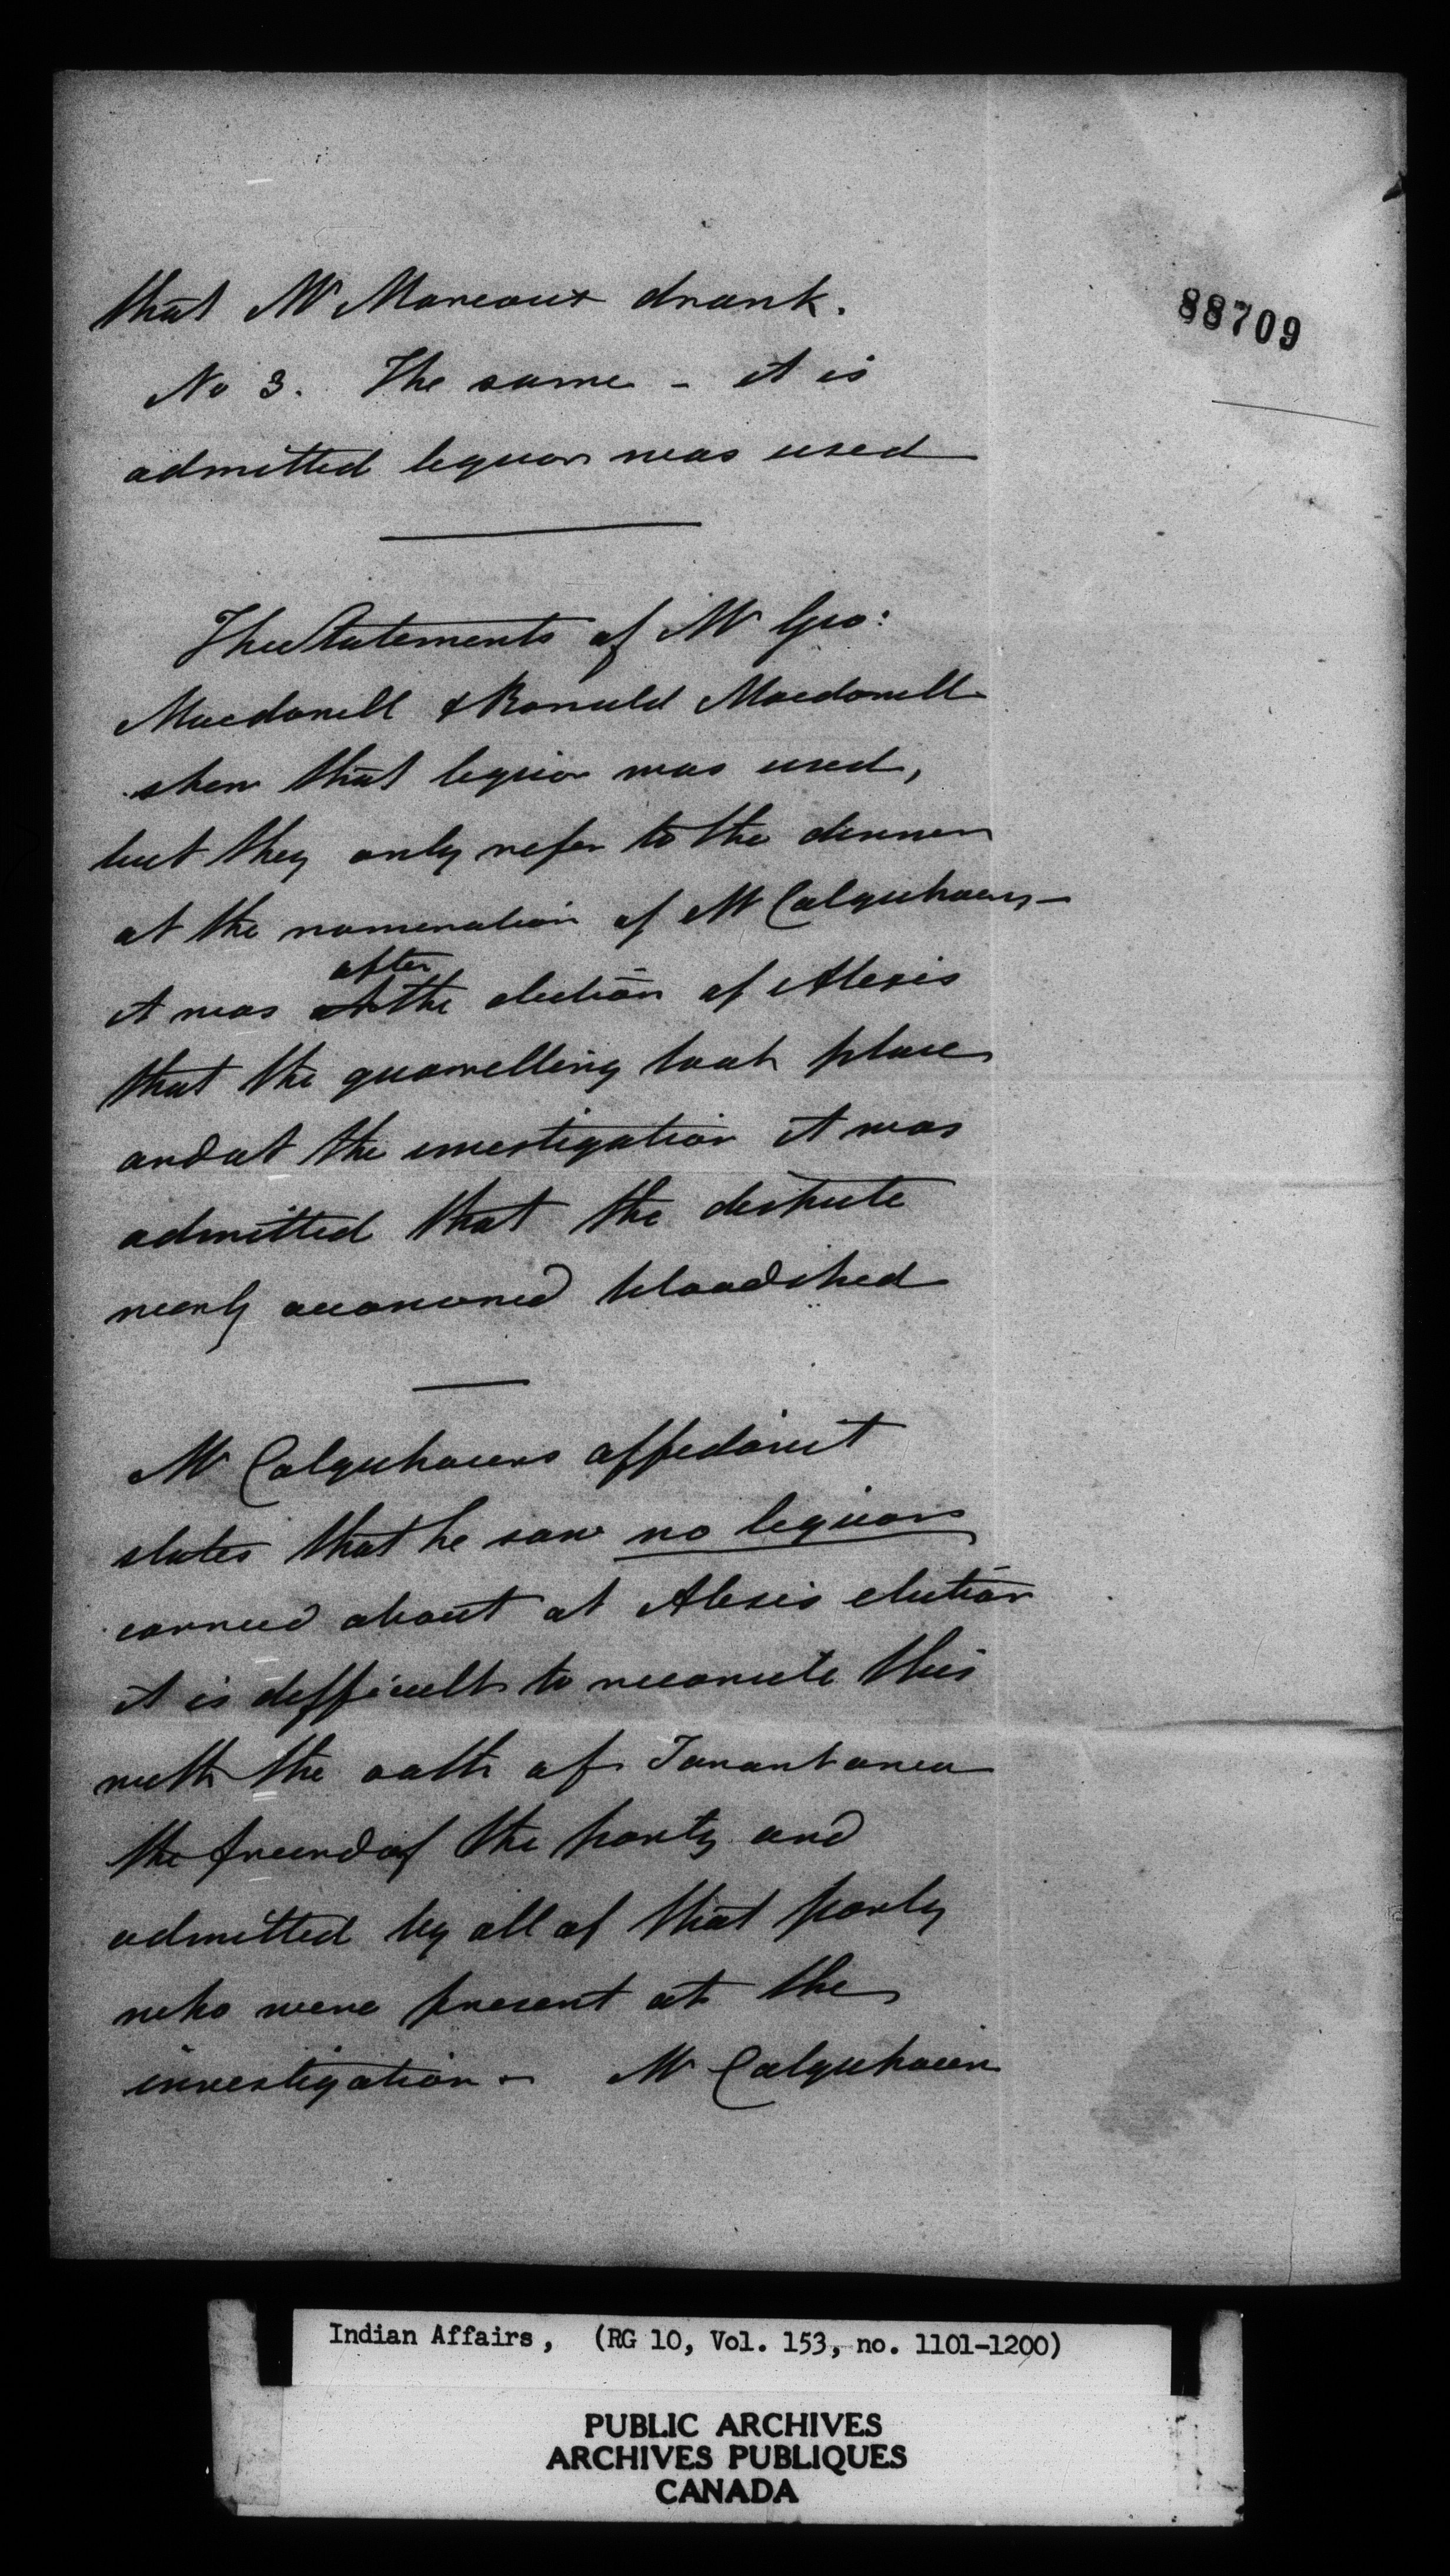 88709
that Mr Marcoux drank.
No 3. The same - it is
admitted liquor was used
The Statements of Mr Geo:
Macdonell & Ronald Macdonell
shew that liquor was used,
but they only refer to the dinner
at the nomination of Mr Colquhoun -
after
it was at the election of Alexis
that the quarrelling took place
and at the investigation it was
admitted that the dispute
nearly occasioned bloodshed
Mr Colquhouns affidavit
states that he saw no liquors
carried about at Alexis election
it is difficult to reconcile this
with the oath of Tarantanea
the friend of the party and
admitted by all of that party
who were present at the
investigation - Mr Colquhoun
Indian Affairs, (RG 10, Vol. 153, no. 1101-1200)
PUBLIC ARCHIVES
ARCHIVES PUBLIQUES
CANADA